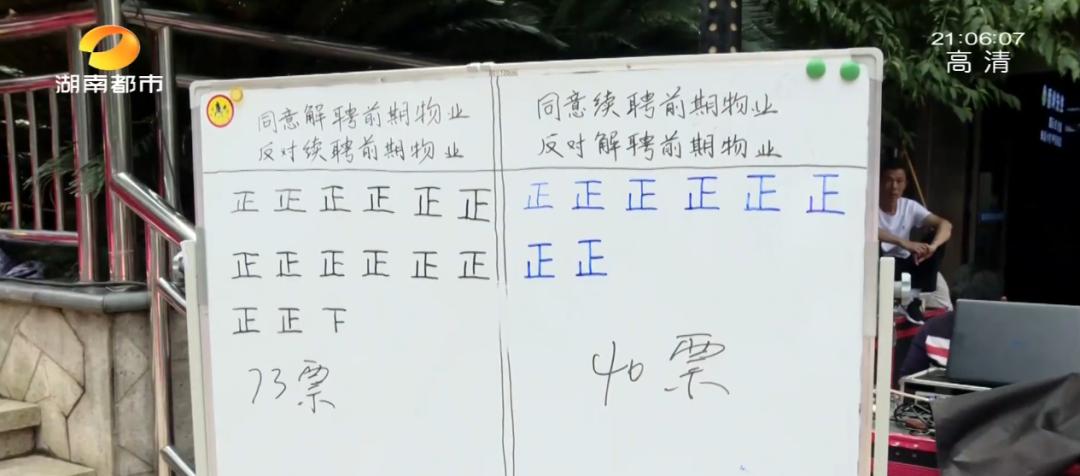 湖南都市
21:06:07
高清
同意解聘前期物业
反对续聘前期物业
正正正正正正
正正正正正正
正正下
73票
同意续聘前期物业
反对解聘前期物业
正正正正正正
正正
40票